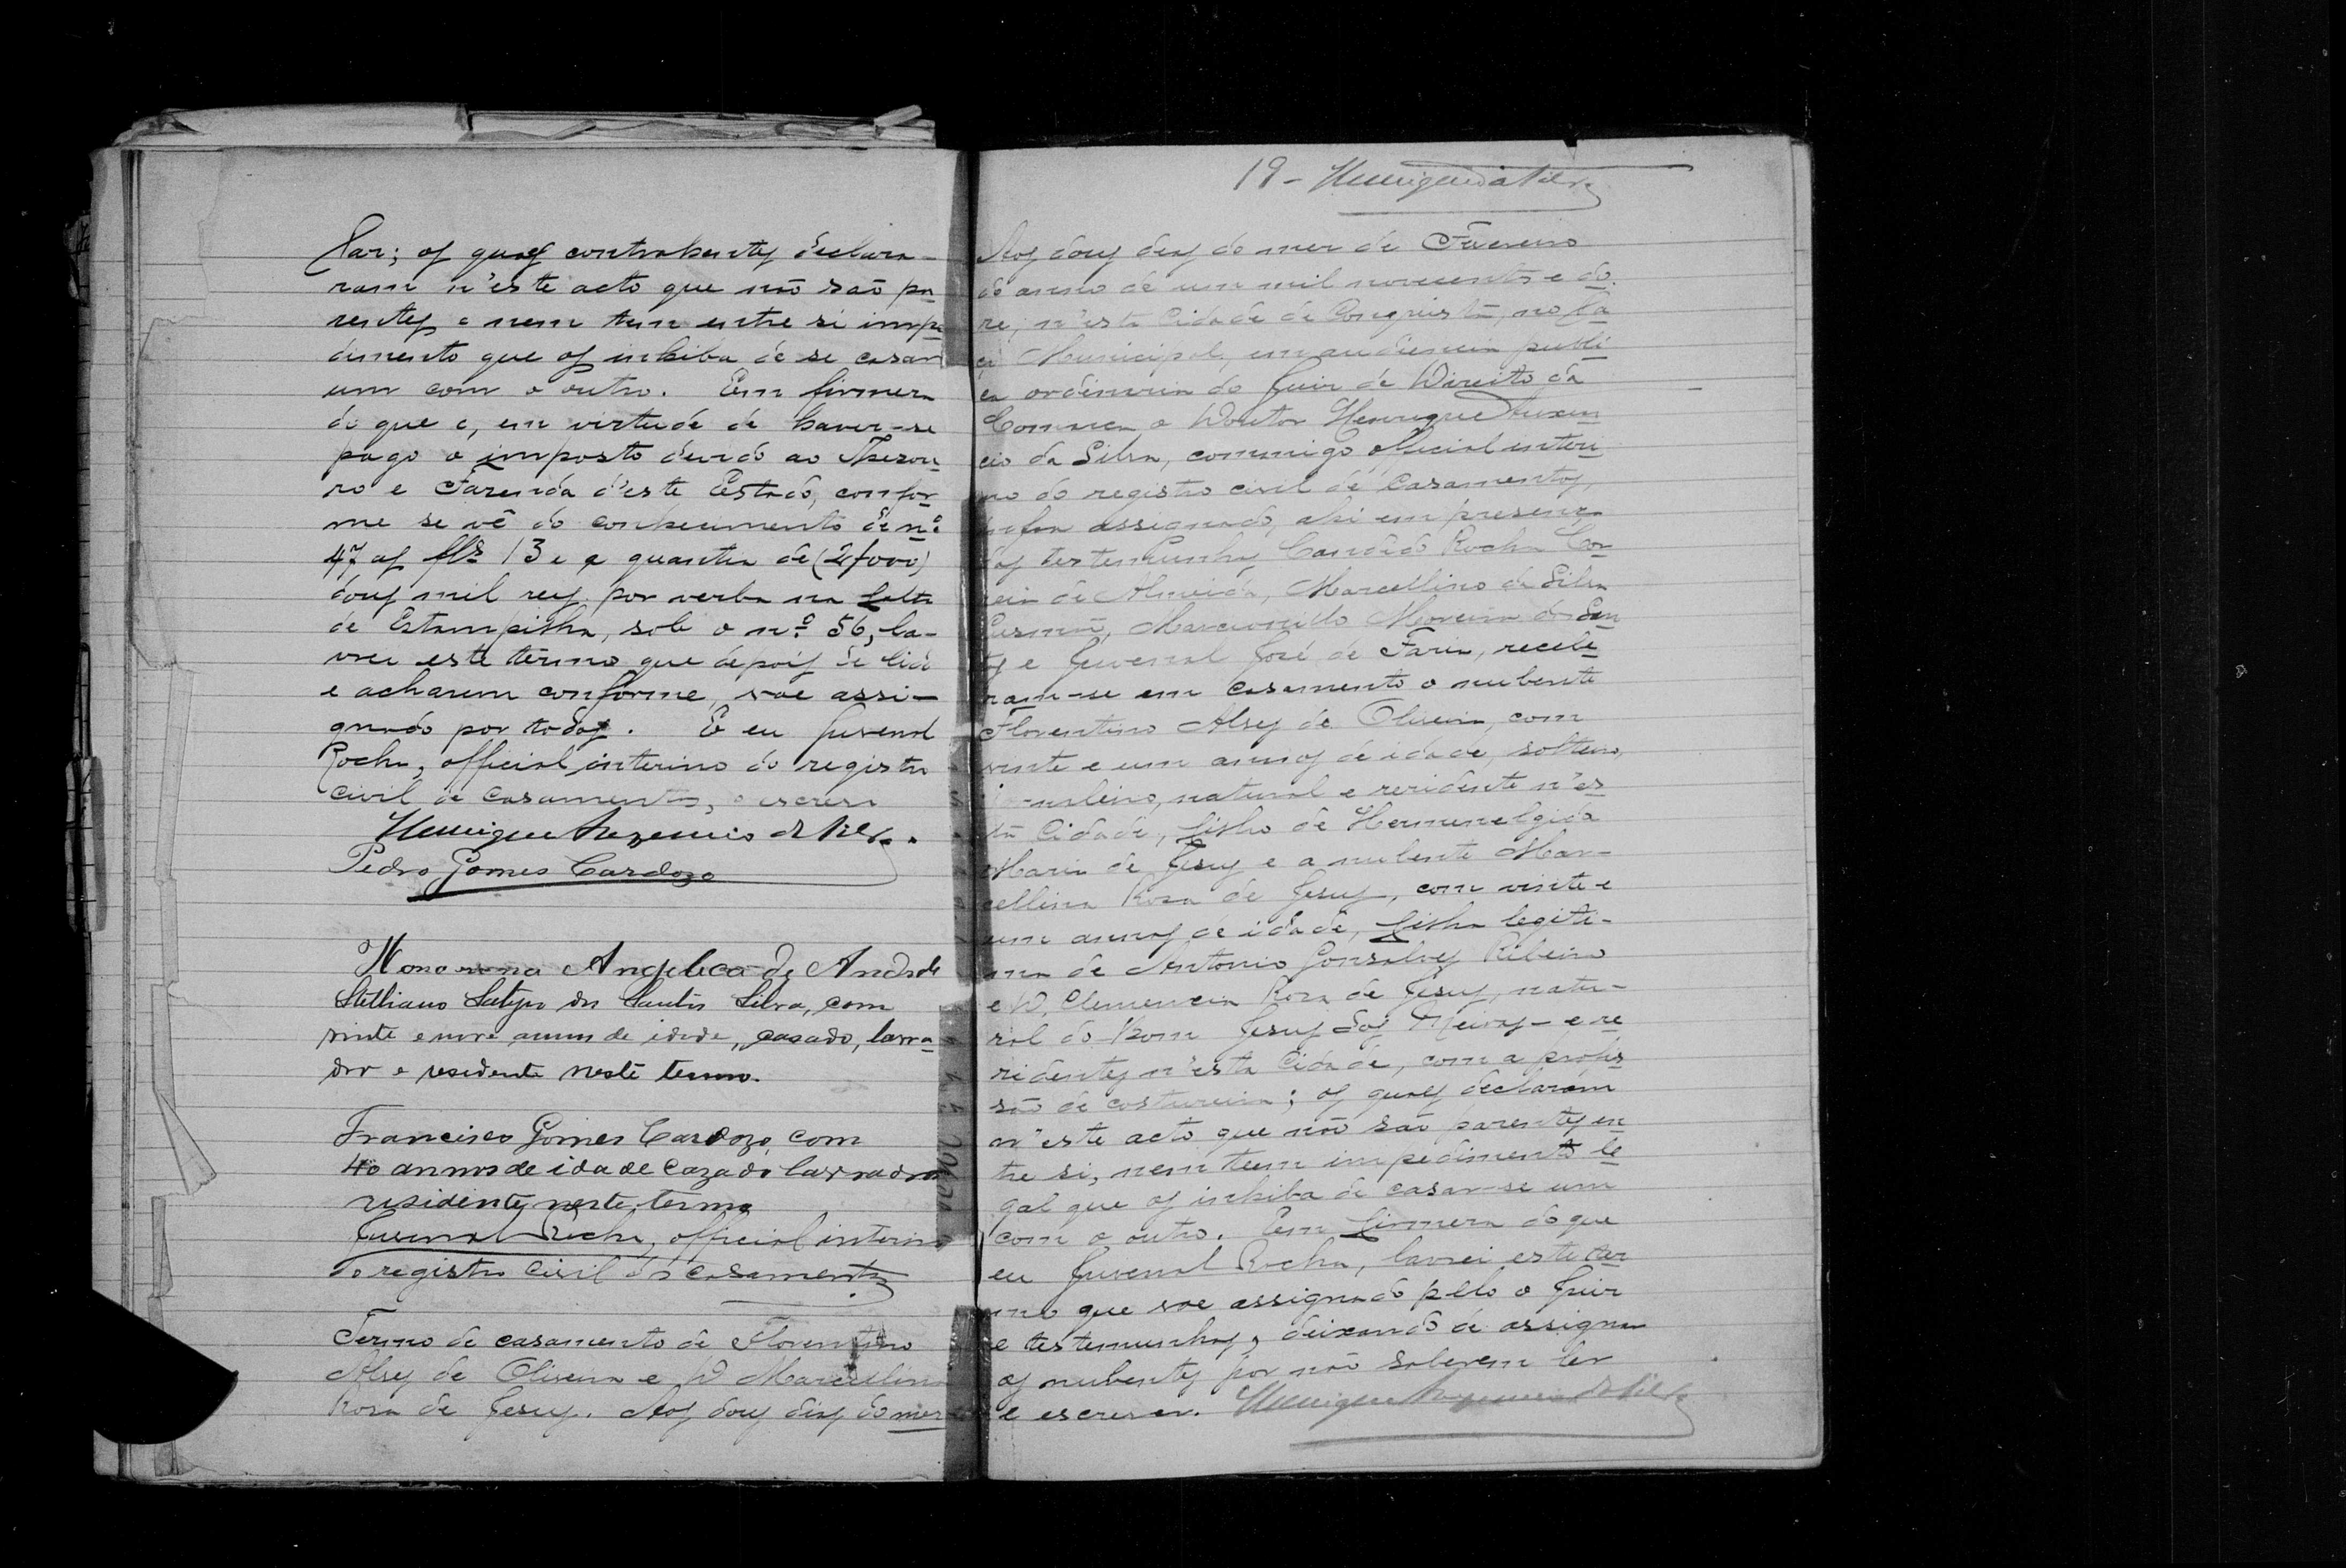 lar; os quaes contrahentes declara-
ram n'este acto que não são pa-
rentes e nem tem entre si impe-
dimento que os inhiba de se casar
um com o outro. Em firmeza
do que e, em virtude de haver-se
pago o imposto devido ao Thesou-
ro e Fazenda d'este Estado, confor-
me se vê do conhecimento de nº
47 as fls 13 e a quantia de (2$000)
dous mil reis por verba na falta
de Estampilha, sob o nº 56, la-
vrei este termo que depois de lido
e acharem conforme, vae assi-
gnado por todos. E eu Juvenal
Rocha, official interino do registro
civil de casamentos, o escrevi
Henrique Auxencio da Silva.
Pedro Gomes Cardozo
Angelica de Andrade
Santos Silva, com
vinte e nove annos de idade, casado, lavra-
dor e residente neste termo.
Francisco Gomes Cardozo, com
40 annos de idade Cazado lavrador
residente neste termo
Juvenal Rocha, official interino
do registro civil de casamentos
Termo de casamento de Florentino
Alves de Oliveira e D Marcellina
Rosa de Jesus. Aos dous dias do mez
19 - Henrique da Silva
Aos dous dias do mez de Fevereiro
do anno de um mil novecentos e do-
ze, n'esta Cidade de Conquista, no Pa-
ço Municipal, em audiencia publi-
ca ordinaria do Juiz de Direito da
Comarca o Doutor Henrique Auxen-
cio da Silva, commigo official interi-
no do registro civil de Casamentos,
infra assignado, ahi em presença
das testemunhas Candido Rocha Cor-
reia de Almeida, Marcellino da Silva
Gusmão, Marcionillo Moreira dos San-
tos e Juvenal José de Faria, recebe-
ram-se em casamento o nubente
Florentino Alves de Oliveira, com
vinte e um annos de idade, solteiro,
natural e rezidente n'es-
ta Cidade, filho de Hermenelgida
Maria de Jesus e a nubente Mar-
cellina Rosa de Jesus, com vinte e
um annos de idade, filha legiti-
ma de Antonio Gonsalves Ribeiro
e D. Clemencia Roza de Jesus, natu-
ral do Bom Jesus dos Meiras - e re-
zidentes n'esta Cidade, com a profis-
são de costureira; os quaes declaram
n'este acto que não são parentes en-
tre si, nem teem impedimento le-
gal que os inhiba de casar-se um
com o outro. Em firmeza do que
eu Juvenal Rocha, lavrei este ter-
mo que vae assignado pelo o Juiz
e testemunhas, deixando de assignar
os nubentes por não saberem ler
e escrever. Henrique Auxencio da Silva